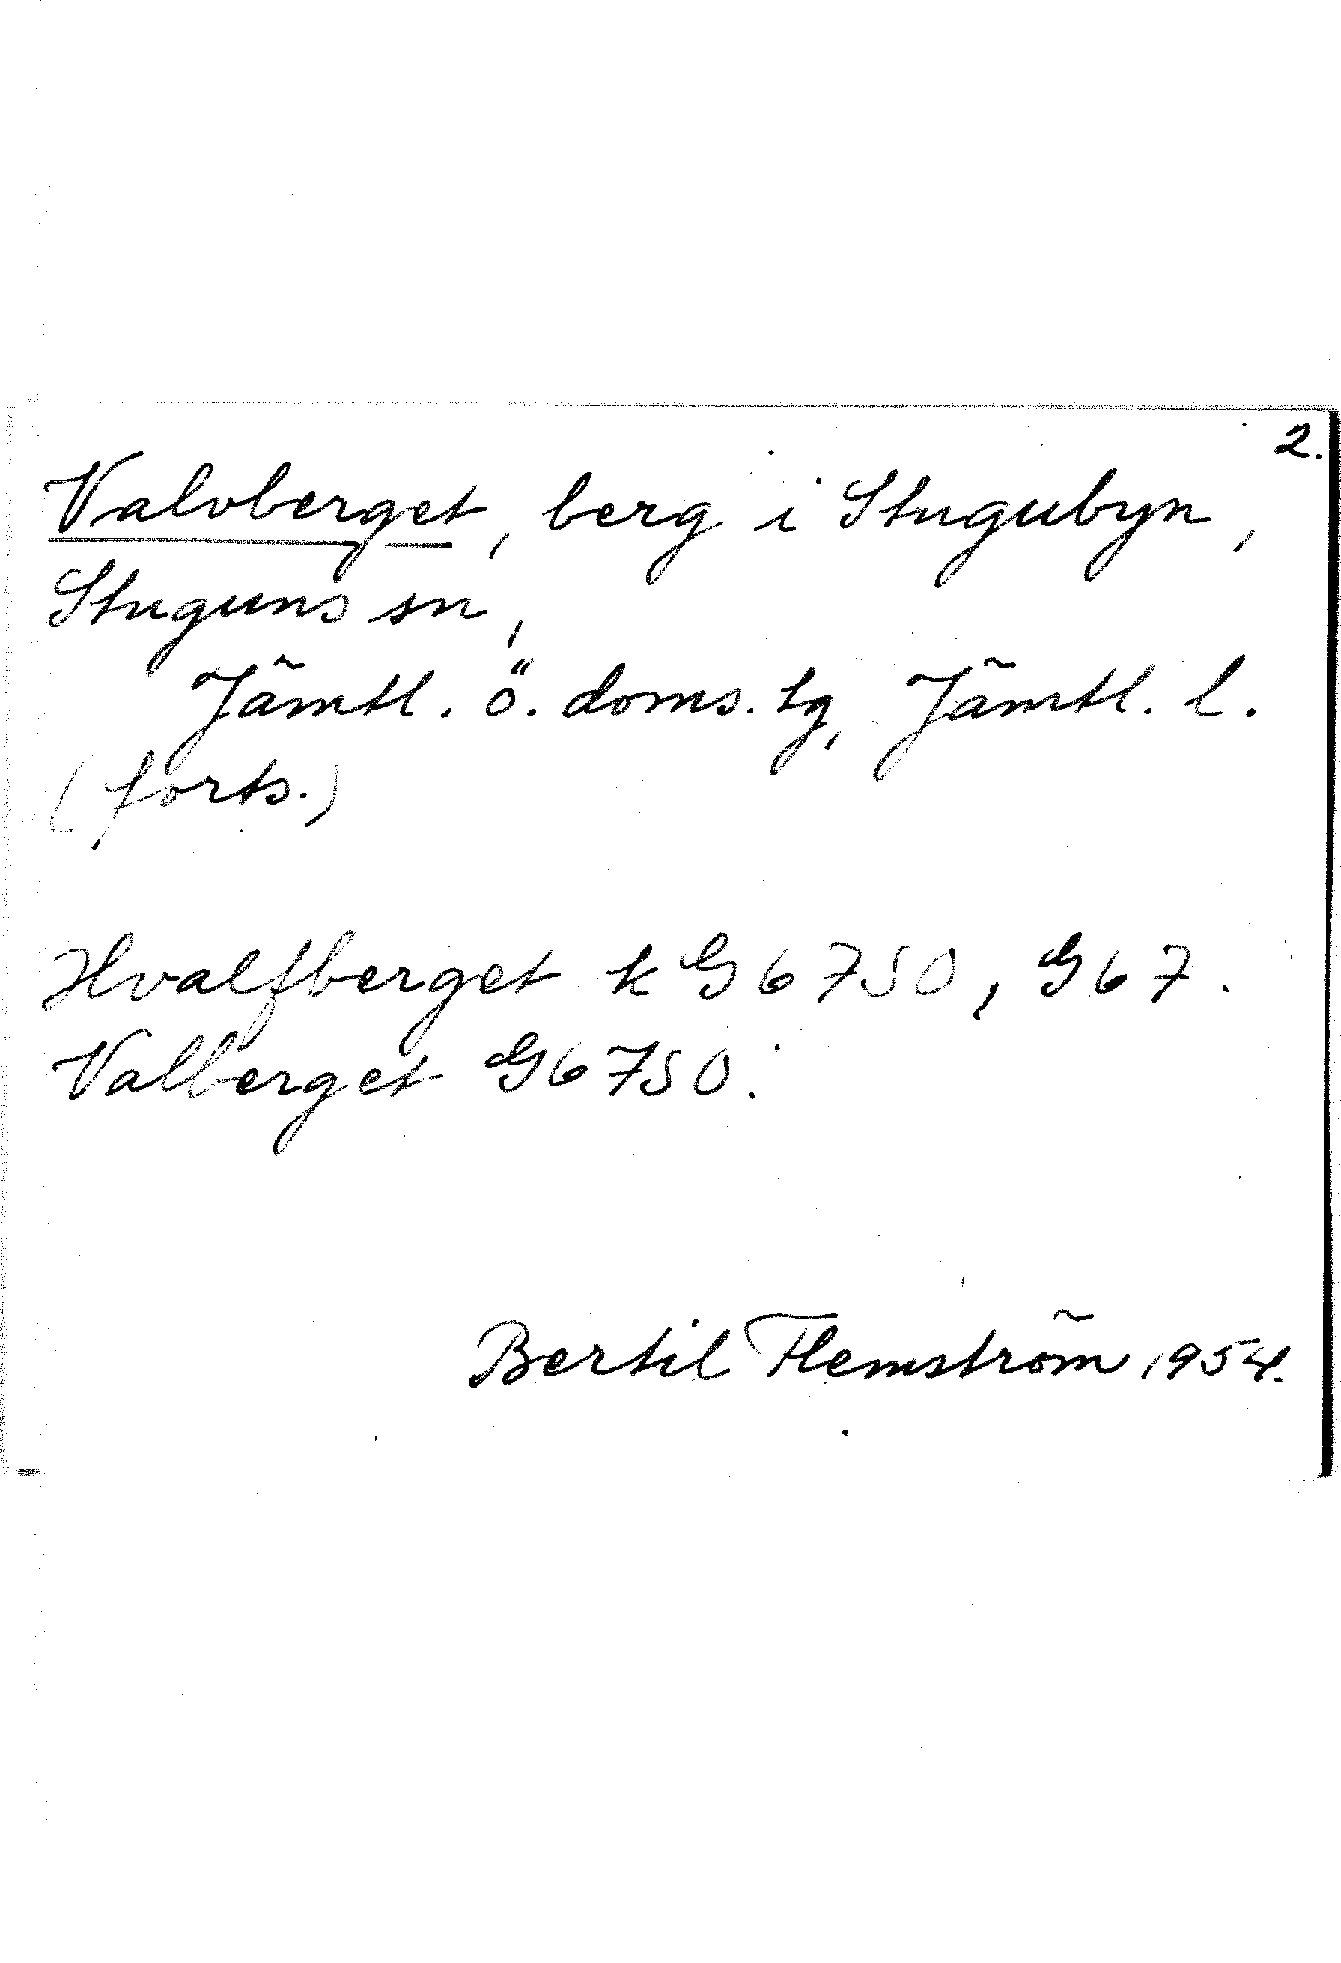 2.
Valvberget, berg i Stugubyn,
Stuguns sn,
Jämtl. ö. doms. tg, Jämtl. l.
(forts.)
Hvalfberget k G6750, G67.
Valberget G6750.
Bertil Flemström 1954.